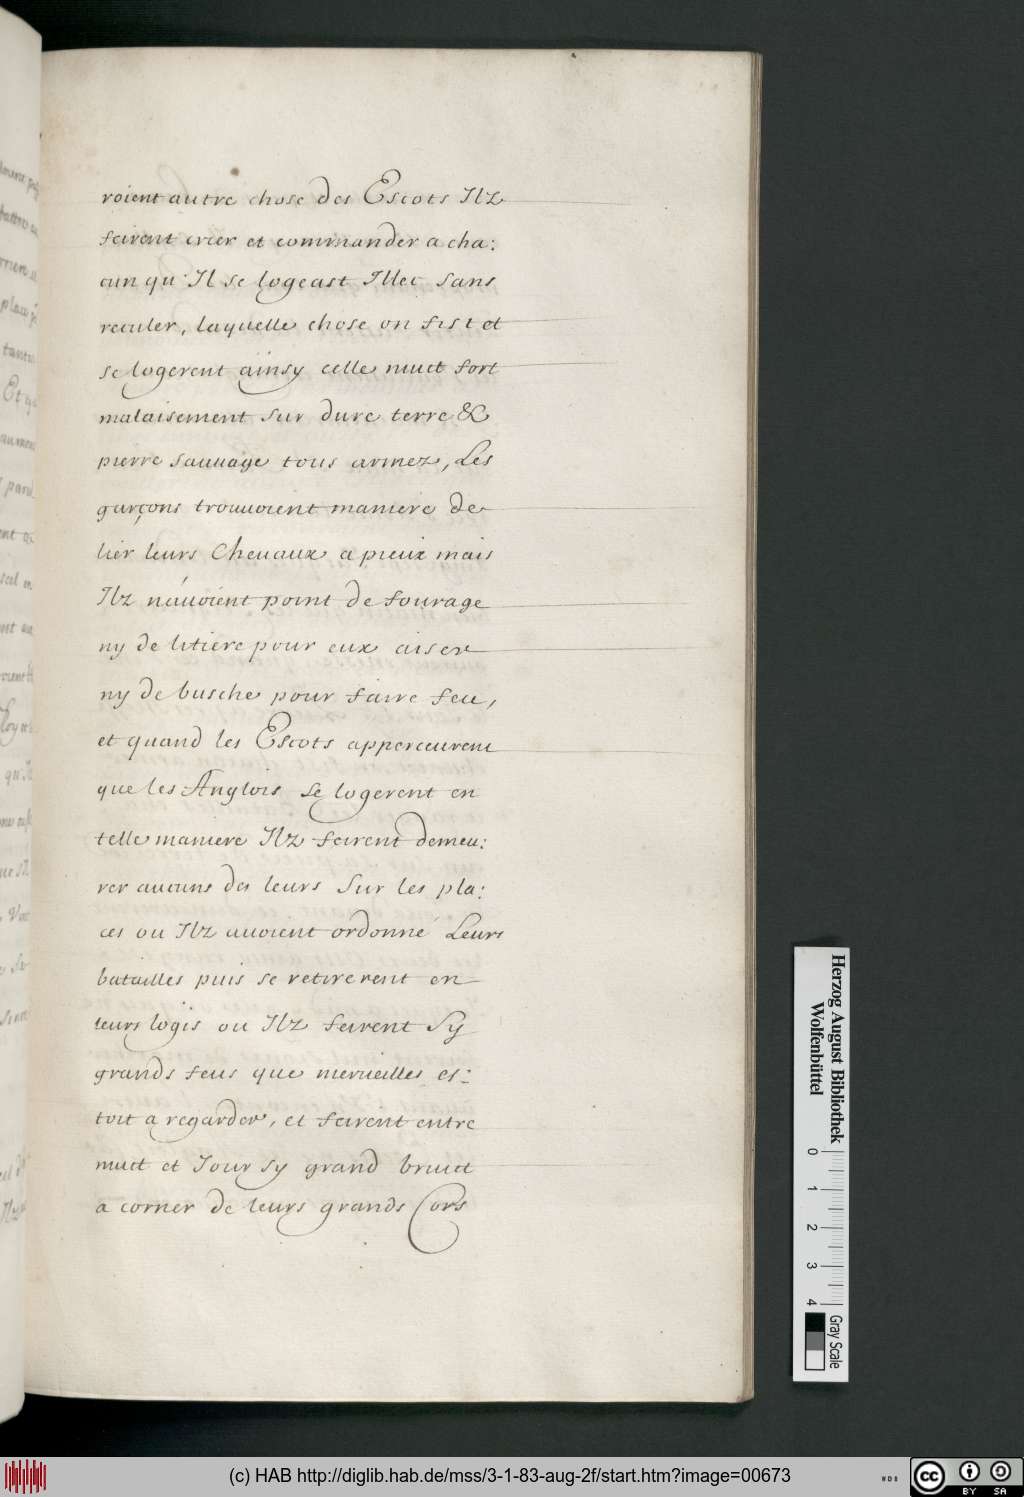 roient autre chose des Escots Ilz
feirent crier et commander a cha:
cun qu'Il se logeast Illec sans
reculer, laquelle chose on fist et
se logerent ainsy celle nuict fort
malaisement sur dure terre &
pierre sauuage tous armez, Les
garçons trouuoient maniere de
lier leurs Cheuaux a pieux mais
Ilz n'auoient point de fourage
ny de litiere pour eux aiser
ny de busche pour faire feu,
et quand les Escots apperceurent
que les Anglois se logerent en
telle maniere Ilz feirent demeu:
rer aucuns des leurs sur les pla:
ces ou Ilz auoient ordonné Leurs
batailles puis se retirerent en
leurs logis ou Ilz feirent Sy
grands feus que merueilles es:
toit a regarder, et feirent entre
nuict et Iour sy grand bruict
a corner de leurs grands Cors
Herzog August Bibliothek
Wolfenbüttel
0 1 2 3 4
Gray Scale
(c) HAB http://diglib.hab.de/mss/3-1-83-aug-2f/start.htm?image=00673
WDB
cc BY SA